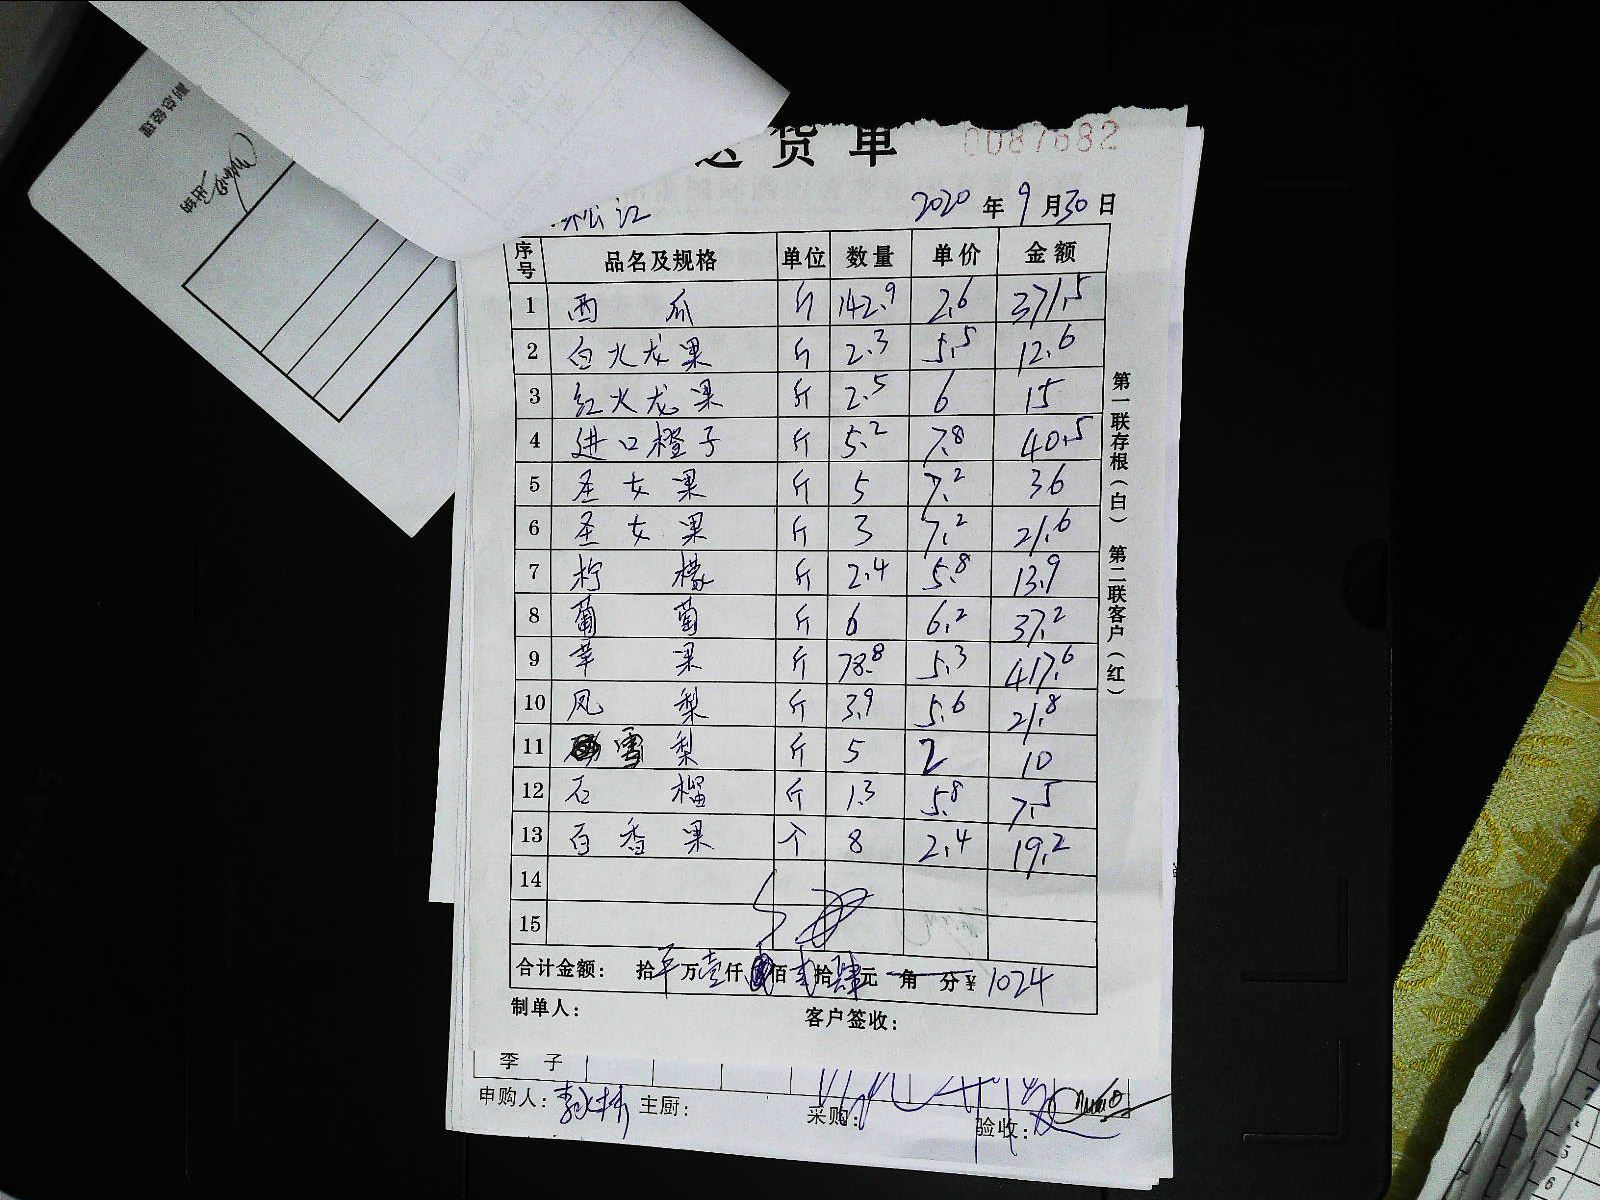 副总经理
出纳
送货单 0087682
松江 2020 年 9 月 30 日
序号 品名及规格 单位 数量 单价 金额
1 西瓜 斤 142.9 2.6 371.5
2 白火龙果 斤 2.3 5.5 12.6
3 红火龙果 斤 2.5 6 15
4 进口橙子 斤 5.2 7.8 40.5
5 圣女果 斤 5 7.2 36
6 圣女果 斤 3 7.2 21.6
7 柠檬 斤 2.4 5.8 13.9
8 葡萄 斤 6 6.2 37.2
9 苹果 斤 78.8 5.3 417.6
10 凤梨 斤 3.9 5.6 21.8
11 雪梨 斤 5 2 10
12 石榴 斤 1.3 5.8 7.5
13 百香果 个 8 2.4 19.2
14
15
合计金额: 拾 万壹仟 佰贰拾肆元 角 分¥ 1024
制单人: 客户签收:
第一联存根(白) 第二联客户(红)
李子
申购人: 主厨: 采购: 验收:
5
6